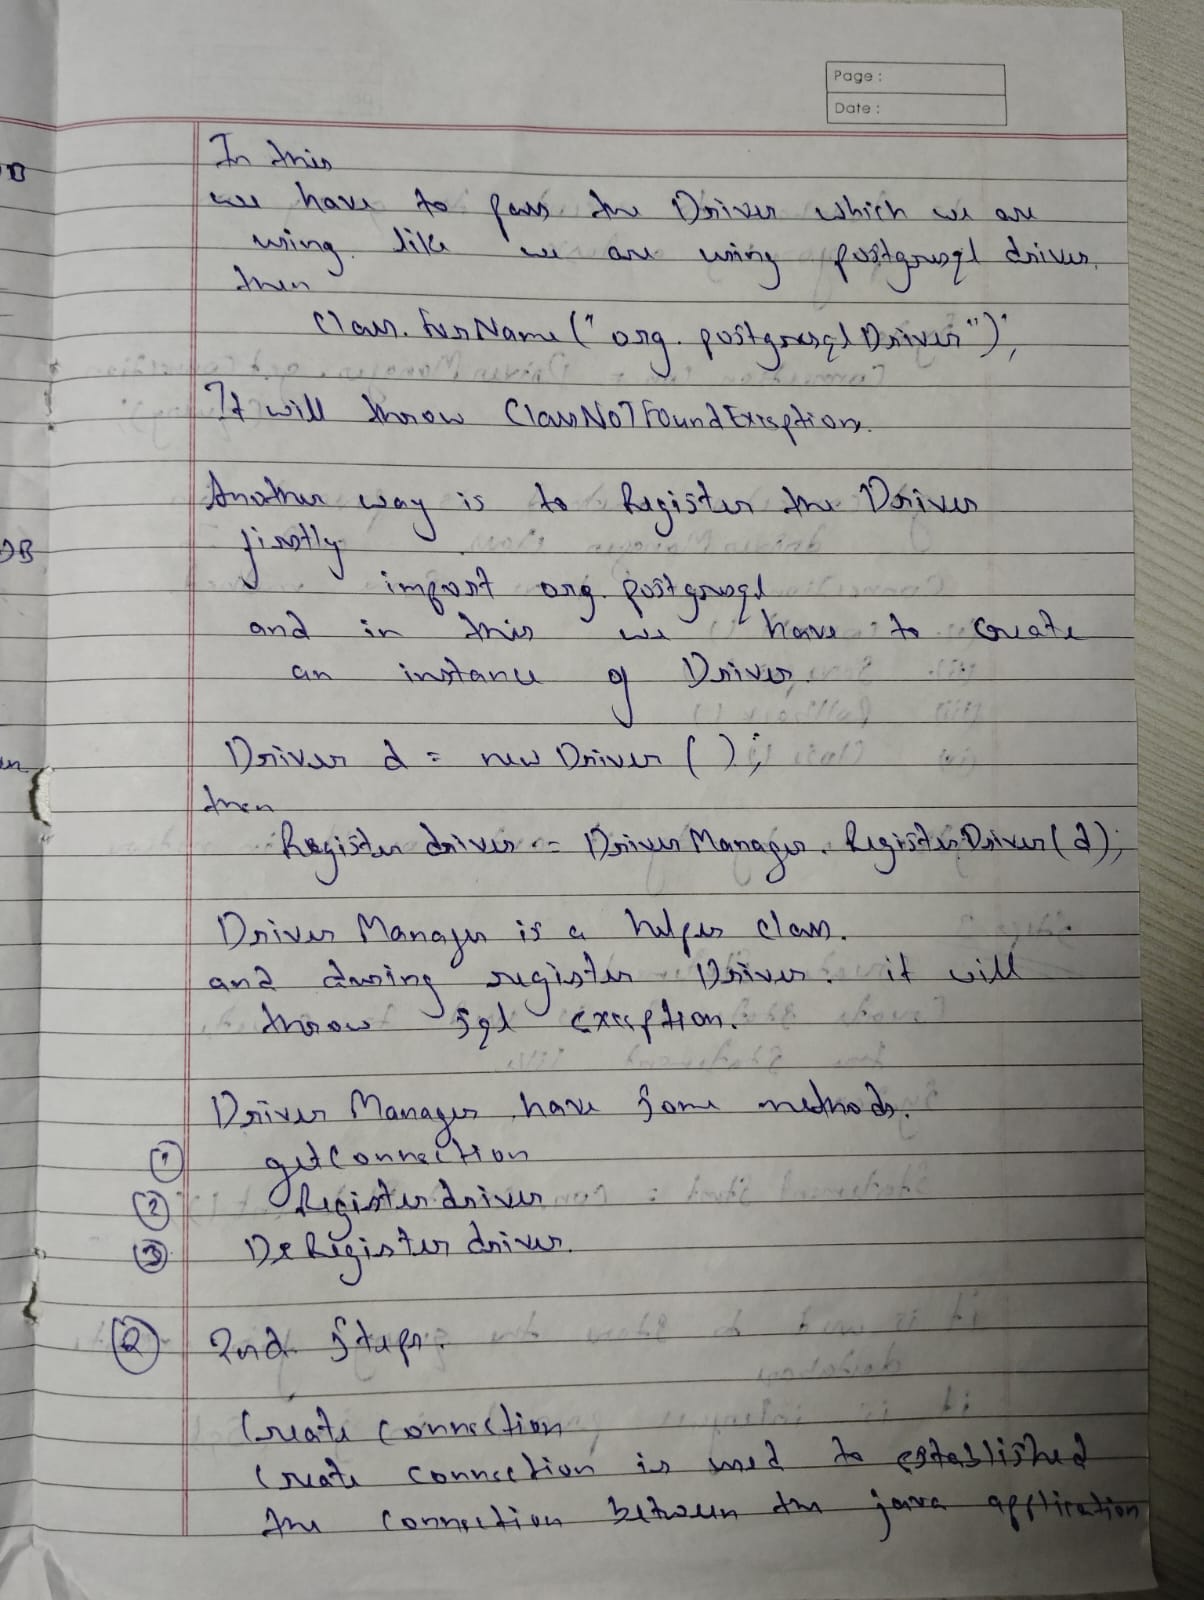 Page :
Date :
In this
we have to pass the Driver which we are
using. like we are using postgresql driver.
then
Class.forName("org.postgresqlDriver");
It will throw ClassNoTFoundException.
Another way is to Register the Driver
firstly
import org.postgresql
and in this we have to create
an instance of Driver.
Driver d = new Driver ( );
then
Register driver = DriverManager. RegisterDriver(d);
Driver Manager is a helper class.
and during register Driver. it will
throw sql exception.
Driver Manager have some methods.
① getConnection
② Register driver
③ DeRegister driver.
② 2nd Steps.
Create Connection
Create connection is used to established
the connection between the java application